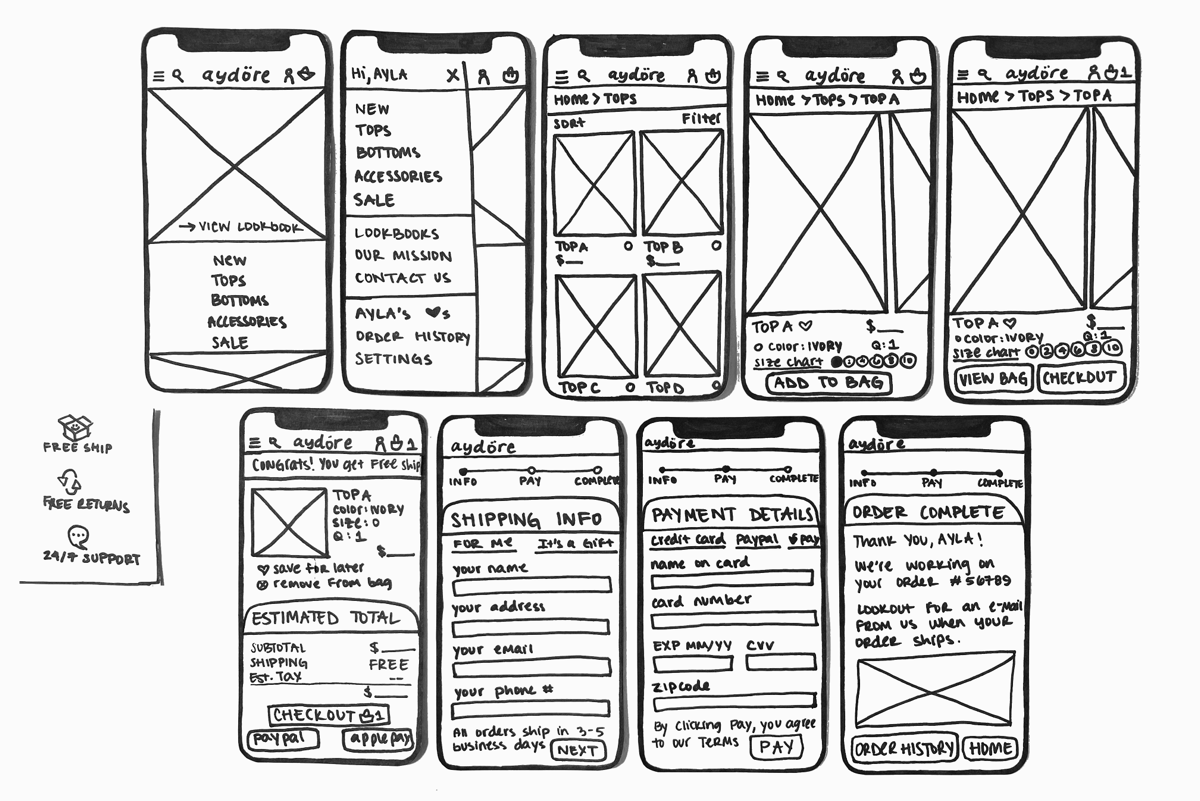 aydöre
→ VIEW LOOKBOOK
NEW
TOPS
BOTTOMS
ACCESSORIES
SALE
Hi, AYLA X
NEW
TOPS
BOTTOMS
ACCESSORIES
SALE
LOOKBOOKS
OUR MISSION
CONTACT US
AYLA'S ♥s
ORDER HISTORY
SETTINGS
aydöre
HOME > TOPS
SORT Filter
TOP A TOP B
$__ $__
TOP C TOP D
aydöre
HOME > TOPS > TOP A
TOP A ♡ $__
O COLOR: IVORY Q: 1
SIZE CHART 2 4 6 8 10
ADD TO BAG
aydöre 1
HOME > TOPS > TOP A
TOP A ♡ $__
O COLOR: IVORY Q: 1
SIZE CHART 0 2 4 6 8 10
VIEW BAG CHECKOUT
FREE SHIP
FREE RETURNS
24/7 SUPPORT
aydöre 1
CONGRATS! YOU GET FREE SHIP
TOP A
COLOR: IVORY
SIZE: 0
Q: 1
$__
♡ SAVE FOR LATER
⊗ REMOVE FROM BAG
ESTIMATED TOTAL
SUBTOTAL $__
SHIPPING FREE
Est. TAX --
$__
CHECKOUT 1
paypal apple pay
aydöre
INFO PAY COMPLETE
SHIPPING INFO
FOR ME It's a Gift
your name
your address
your email
your phone #
All orders ship in 3-5
business days NEXT
aydöre
INFO PAY COMPLETE
PAYMENT DETAILS
Credit Card Paypal Pay
name on card
card number
EXP MM/YY CVV
ZIPCODE
By Clicking Pay, you agree
to our TERMS PAY
aydöre
INFO PAY COMPLETE
ORDER COMPLETE
Thank you, AYLA!
We're working on
your order #56789
LOOKOUT FOR an e-mail
FROM US when your
order ships.
ORDER HISTORY HOME